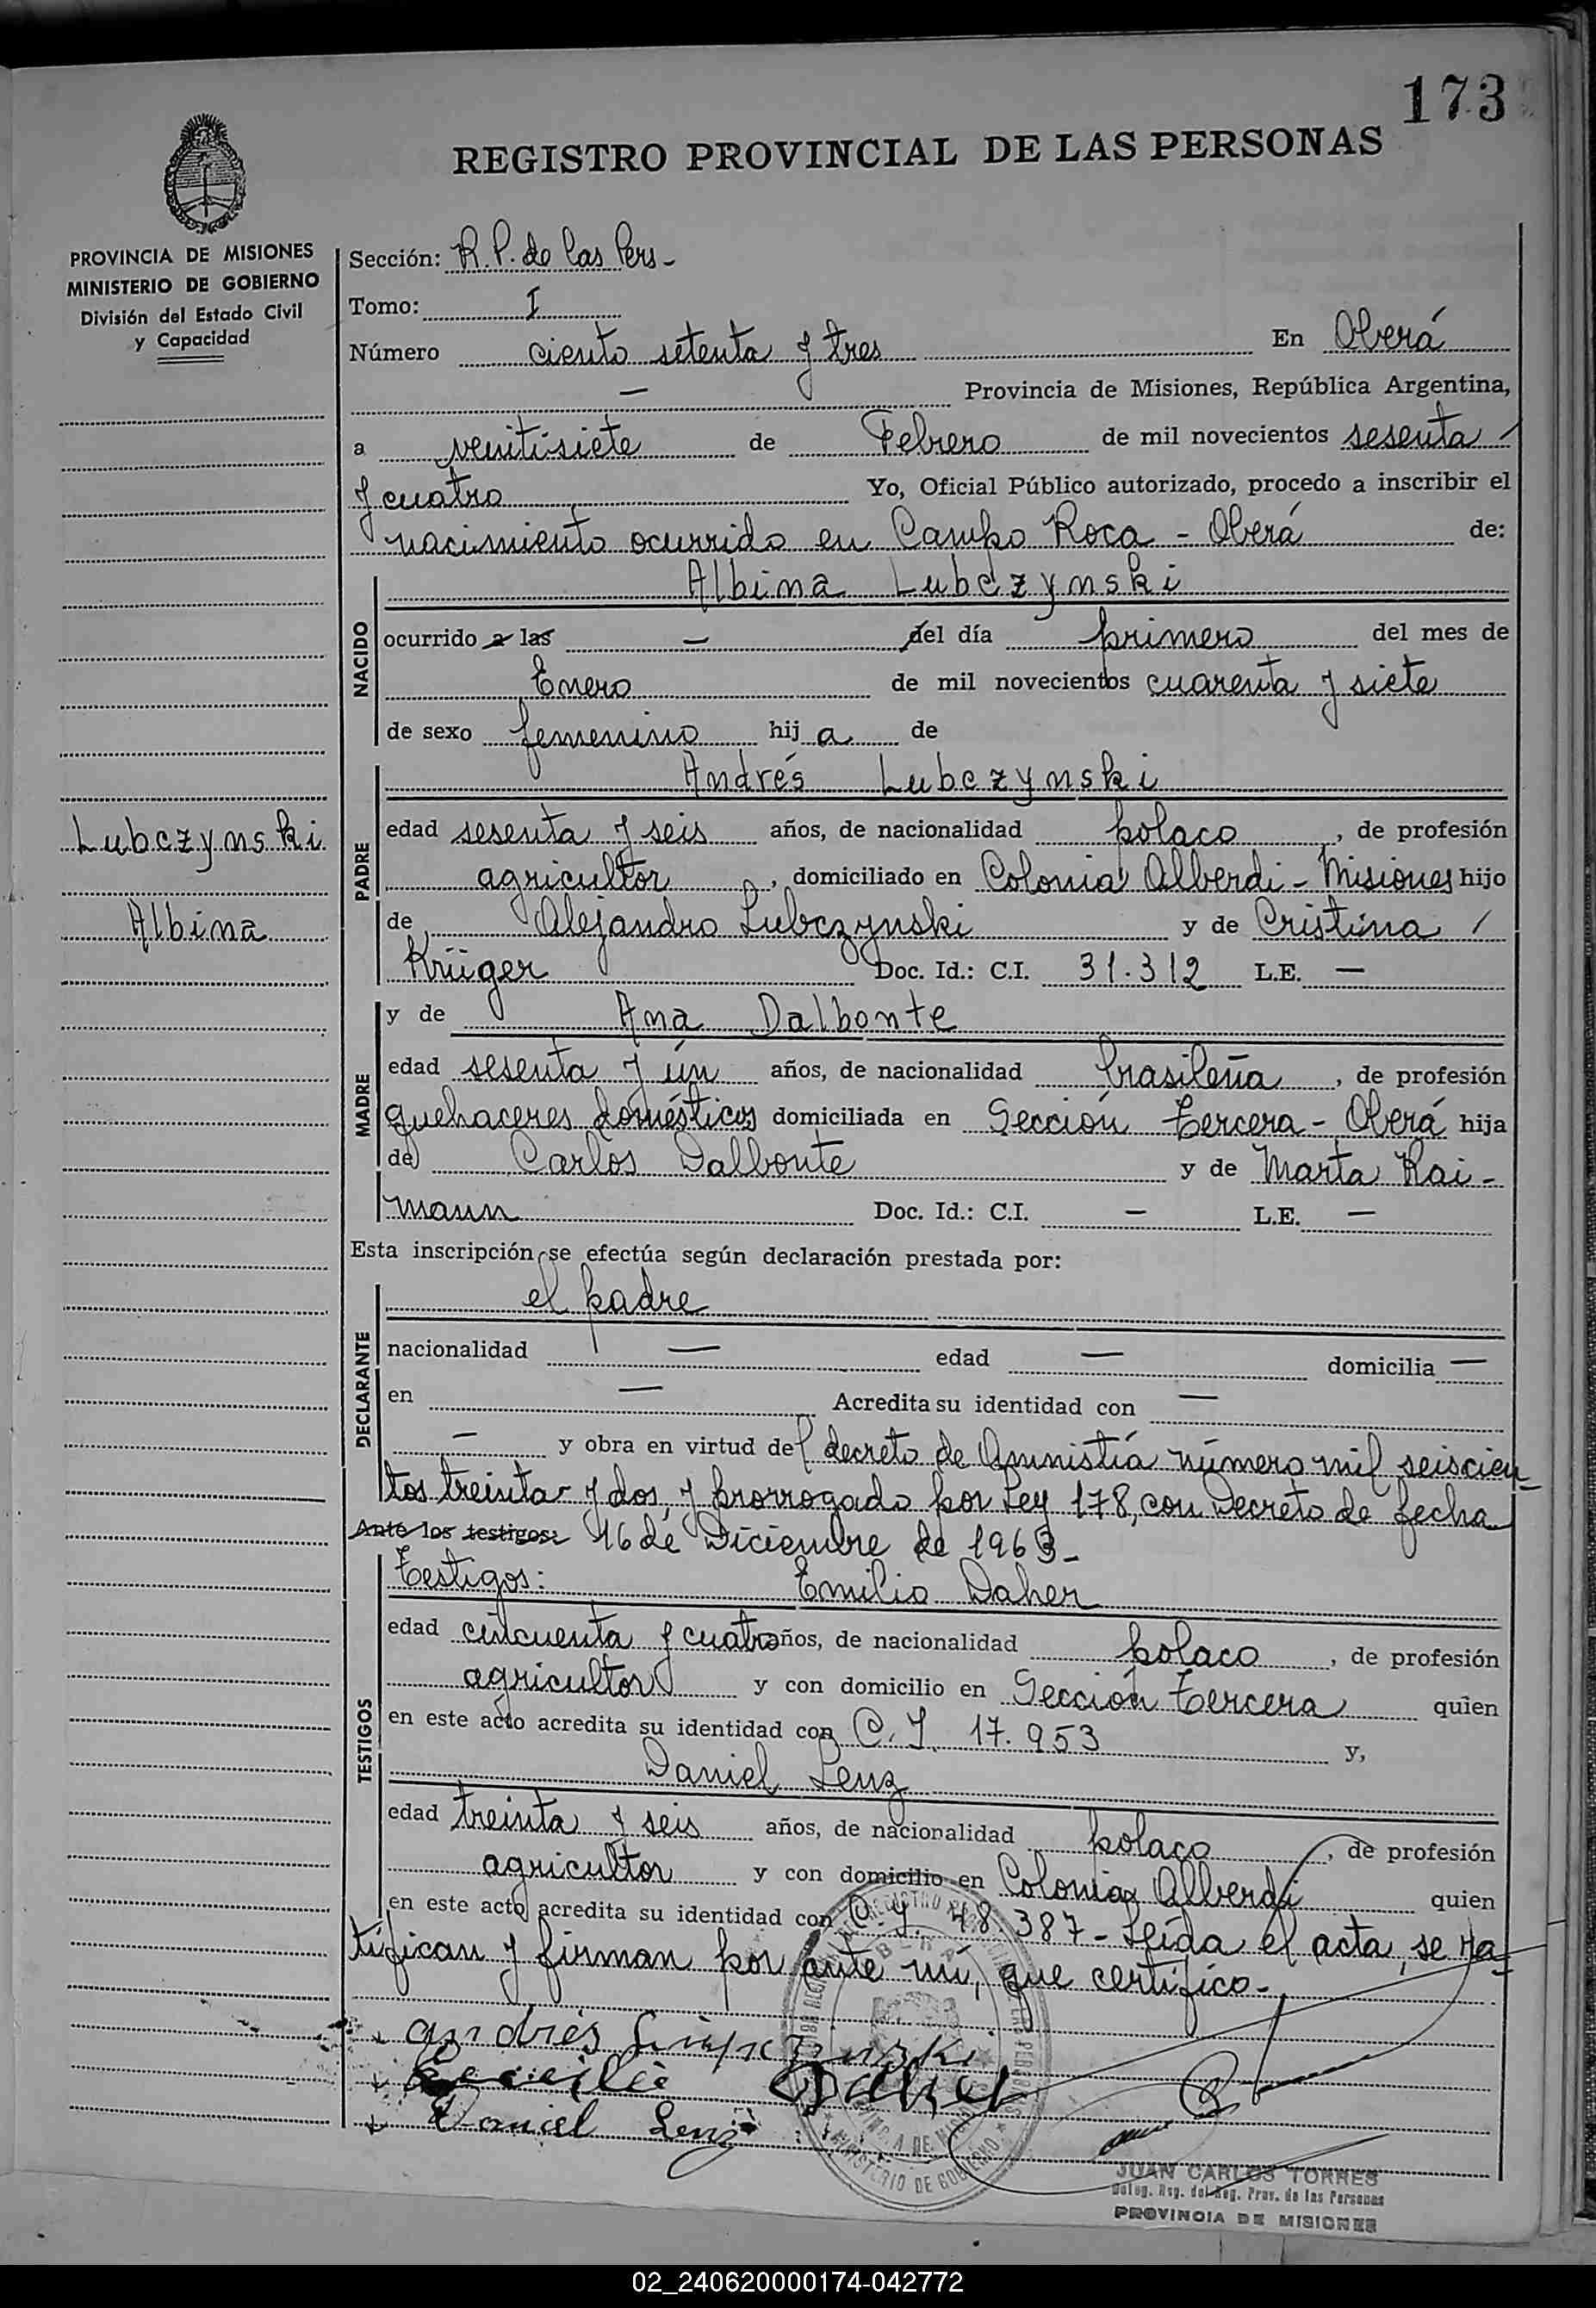 173
REGISTRO PROVINCIAL DE LAS PERSONAS
PROVINCIA DE MISIONES
MINISTERIO DE GOBIERNO
División del Estado Civil
y Capacidad
Sección: R.P. de las Pers-
Tomo: I
Número ciento setenta y tres En Oberá
— Provincia de Misiones, República Argentina,
a ventisiete de Febrero de mil novecientos sesenta
y cuatro Yo, Oficial Público autorizado, procedo a inscribir el
nacimiento ocurrido en Campo Roca - Oberá de:
NACIDO
Albina Lubczynski
ocurrido a las — del día primero del mes de
Enero de mil novecientos cuarenta y siete
de sexo femenino hij a de
PADRE
Andrés Lubczynski
Lubczynski
Albina
edad sesenta y seis años, de nacionalidad polaco, de profesión
agricultor, domiciliado en Colonia Alberdi - Misiones hijo
de Alejandro Lubczynski y de Cristina /
Krüger Doc. Id.: C.I. 31.312 L.E. —
MADRE
y de Ana Dalbonte
edad sesenta y ún años, de nacionalidad brasileña, de profesión
quehaceres domésticos domiciliada en Sección Tercera - Oberá hija
de Carlos Dalbonte y de Marta Kai-
mann Doc. Id.: C.I. — L.E. —
Esta inscripción se efectúa según declaración prestada por:
DECLARANTE
el padre
nacionalidad — edad — domicilia —
en — Acredita su identidad con —
— y obra en virtud del decreto de Amnistía número mil seiscien-
tos treinta y dos, y prorrogado por Ley 178, con Decreto de fecha
Ante los testigos: 16 de Diciembre de 1963-
TESTIGOS
Testigos: Emilio Daher
edad cincuenta y cuatro años, de nacionalidad polaco, de profesión
agricultor y con domicilio en Sección Tercera quien
en este acto acredita su identidad con C.I. 17.953 y,
Daniel Lenz
edad treinta y seis años, de nacionalidad polaco, de profesión
agricultor y con domicilio en Colonia Alberdi quien
en este acto acredita su identidad con C.I. 48.387 - Leída el acta, se ra-
tifican y firman por ante mí, que certifico.-
Andrés
Daher
Daniel Lenz
MINISTERIO DE GOBIERNO
JUAN CARLOS TORRES
Deleg. Reg. del Reg. Prov. de las Personas
PROVINCIA DE MISIONES
02_240620000174-042772